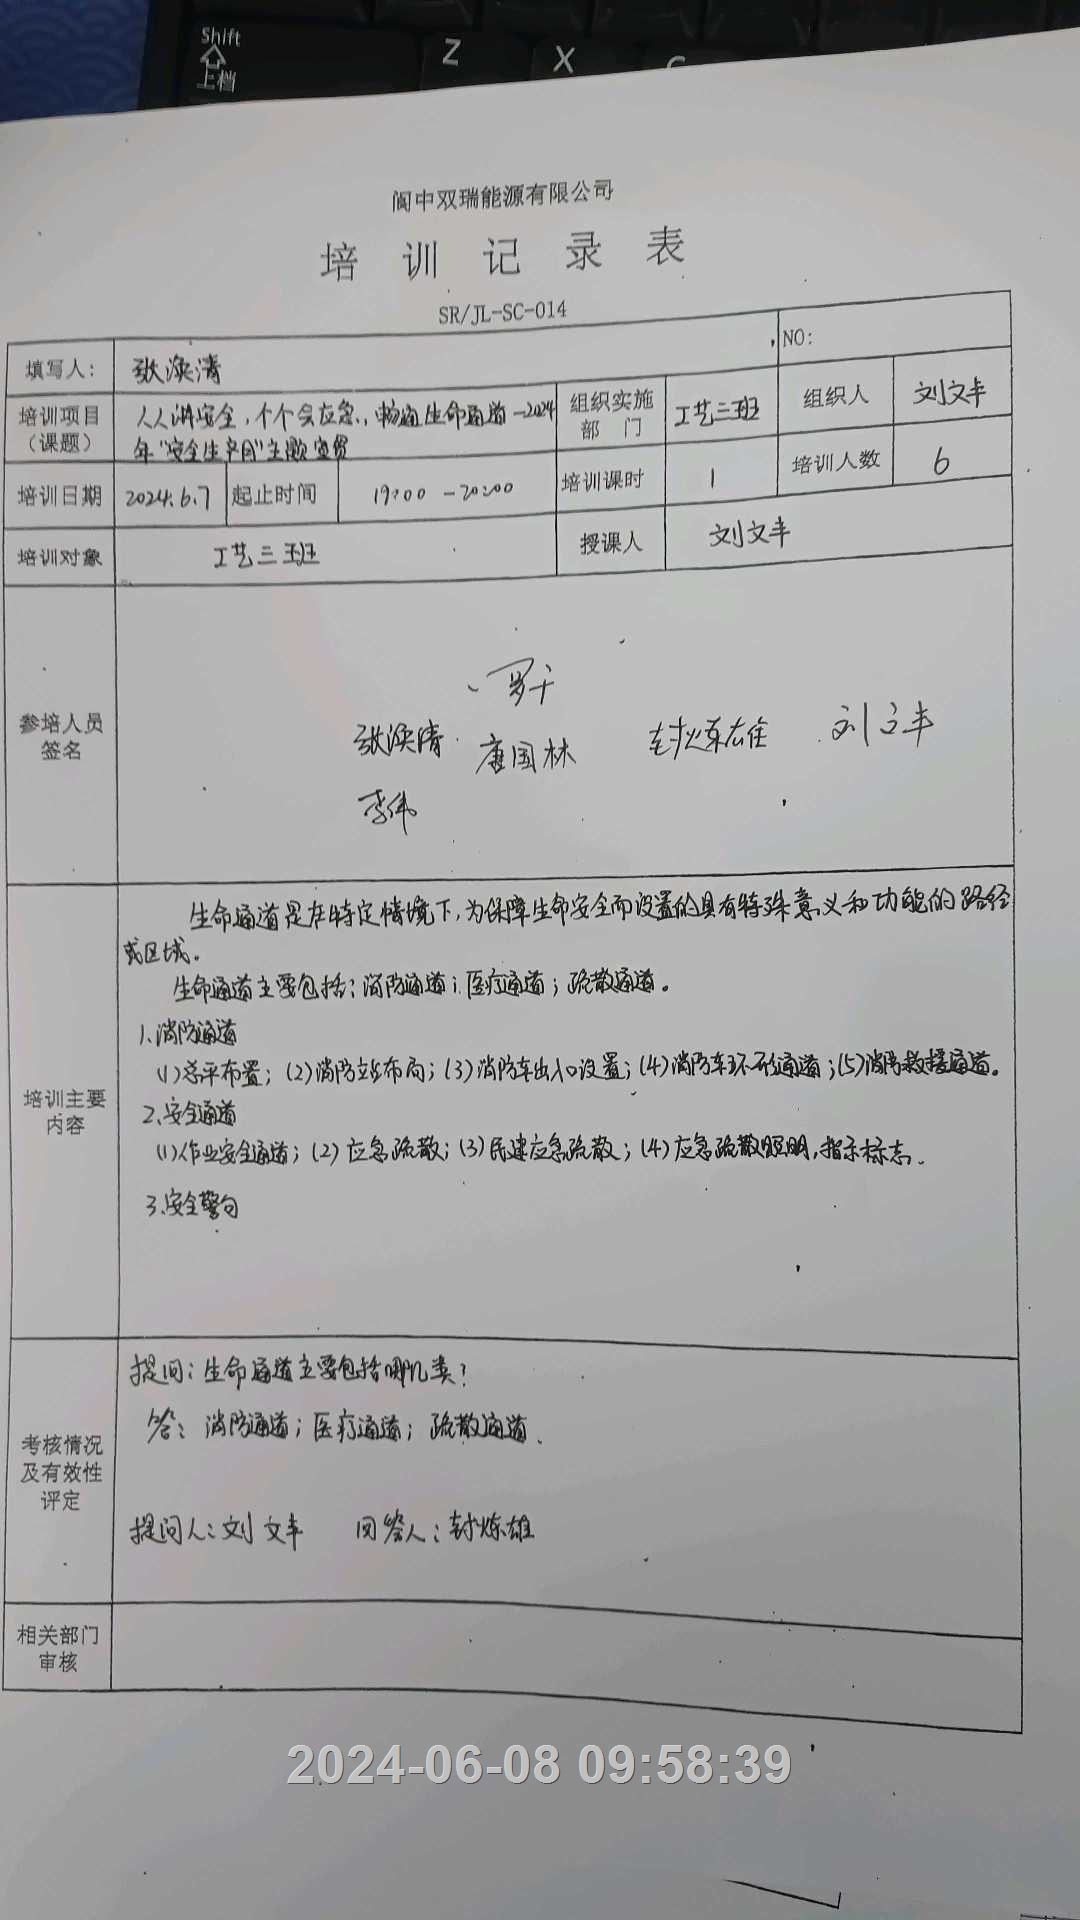 Shift
上档
Z
X
C
阆中双瑞能源有限公司
培训记录表
SR/JL-SC-014
填写人: 张涣清 NO:
培训项目（课题） 人人讲安全,个个会应急,畅通生命通道—2024
年"安全生产月"主题宣贯
组织实施部门 工艺三班 组织人 刘文丰
培训日期 2024.6.7 起止时间 19:00-20:00 培训课时 1 培训人数 6
培训对象 工艺三班 授课人 刘文丰
参培人员签名
罗干
张涣清 唐国林 封炼雄 刘文丰
李伟
培训主要内容
生命通道是在特定情境下,为保障生命安全而设置的具有特殊意义和功能的路径
或区域。
生命通道主要包括:消防通道;医疗通道;疏散通道。
1.消防通道
(1)总平布置;(2)消防站布局;(3)消防车出入口设置;(4)消防车环形通道;(5)消防救援通道。
2.安全通道
(1)作业安全通道;(2)应急疏散;(3)民建应急疏散;(4)应急疏散照明,指示标志.
3.安全警句
考核情况及有效性评定
提问:生命通道主要包括哪几类?
答:消防通道;医疗通道;疏散通道.
提问人:刘文丰 回答人:封炼雄
相关部门审核
2024-06-08 09:58:39